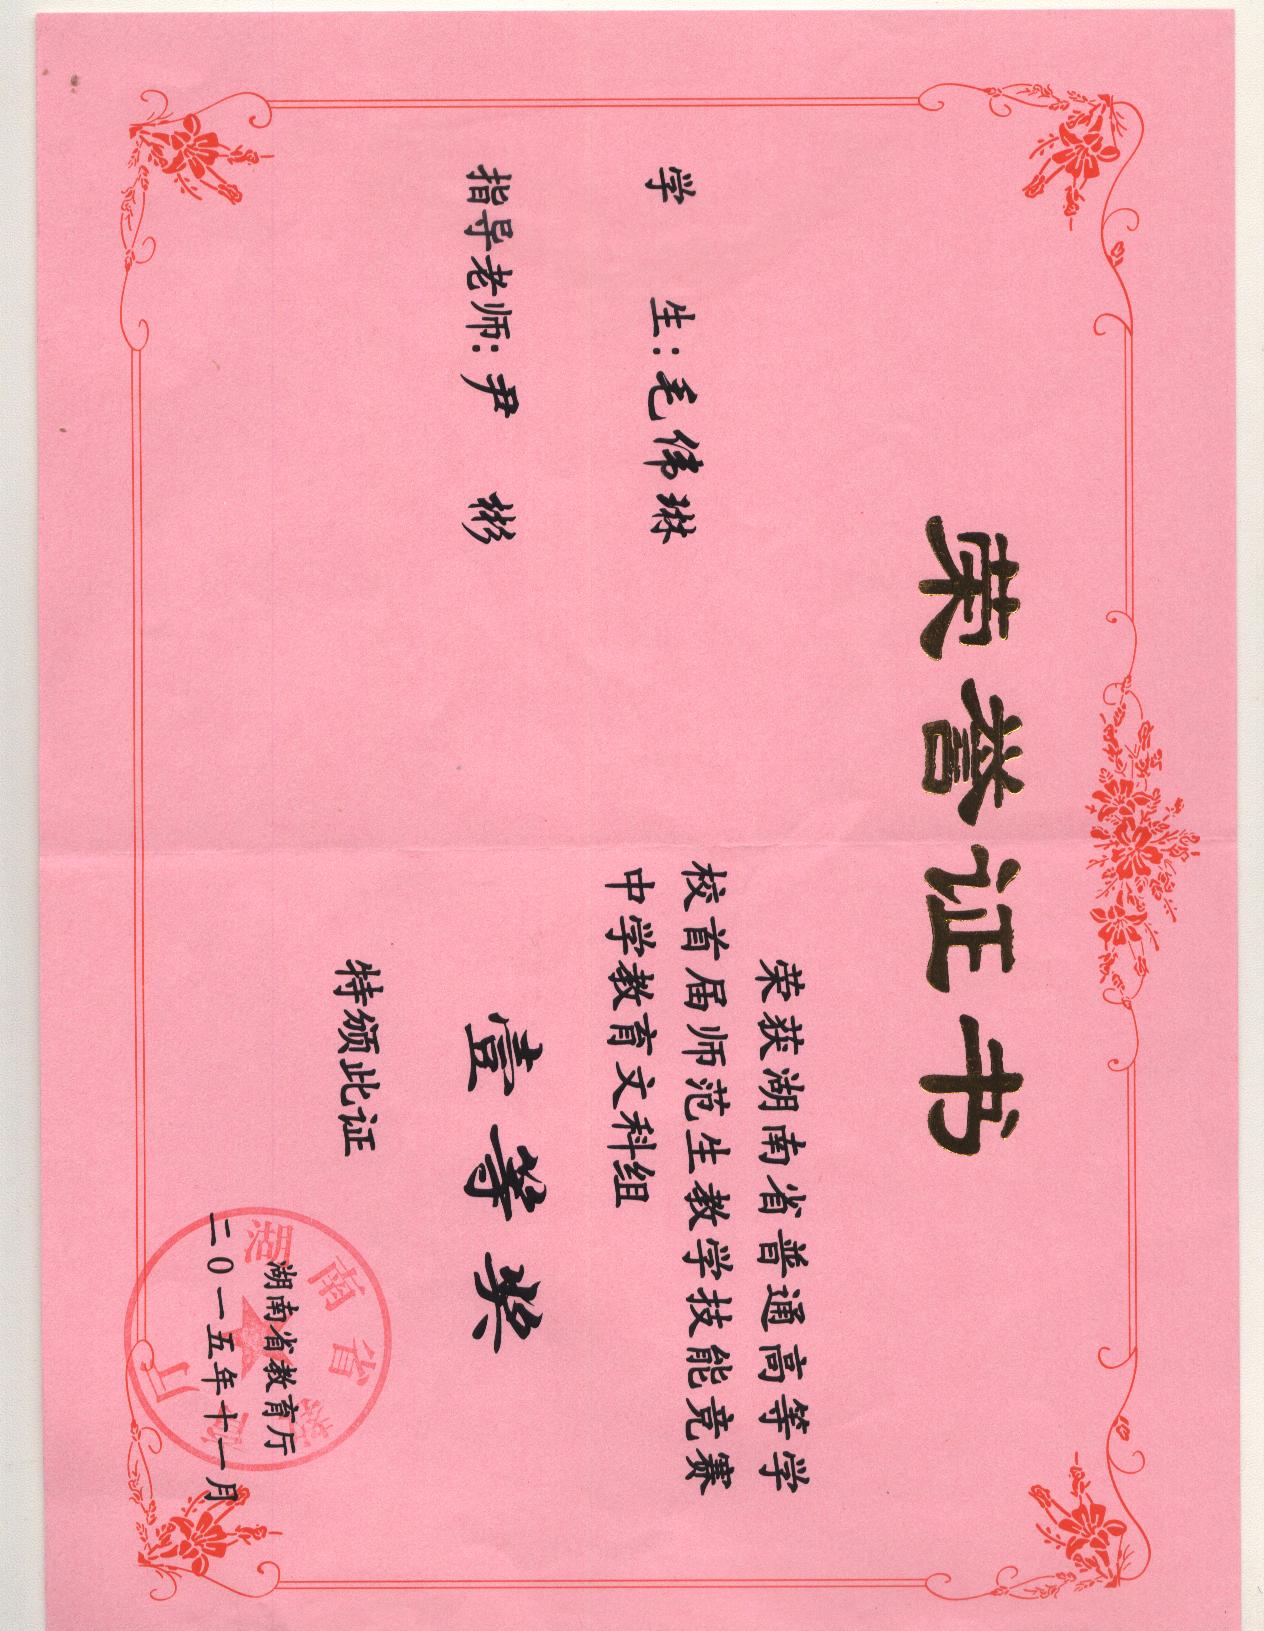 荣誉证书
学 生：毛伟琳
指导老师：尹 彬
荣获湖南省普通高等学
校首届师范生教学技能竞赛
中学教育文科组
壹等奖
特颁此证
湖南省教育厅
二0一五年十一月
湖南省教育厅